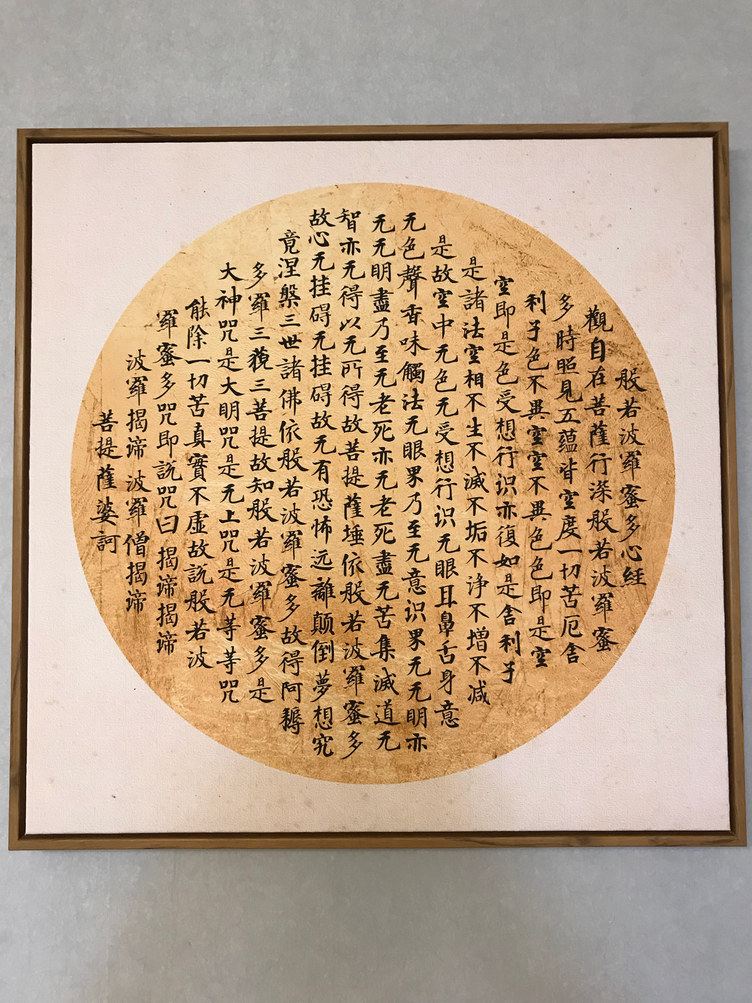 般若波羅蜜多心经
觀自在菩薩行深般若波羅蜜
多時昭見五蕴皆空度一切苦厄舍
利子色不異空空不異色色即是空
空即是色受想行识亦復如是舍利子
是諸法空相不生不滅不垢不净不增不减
是故空中无色无受想行识无眼耳鼻舌身意
无色聲香味觸法无眼界乃至无意识界无无明亦
无无明盡乃至无老死亦无老死盡无苦集滅道无
智亦无得以无所得故菩提薩埵依般若波羅蜜多
故心无挂碍无挂碍故无有恐怖远離颠倒夢想究
竟涅槃三世諸佛依般若波羅蜜多故得阿耨
多羅三藐三菩提故知般若波羅蜜多是
大神咒是大明咒是无上咒是无等等咒
能除一切苦真實不虚故説般若波
羅蜜多咒即説咒曰揭谛揭谛
波羅揭谛 波羅僧揭谛
菩提薩婆訶